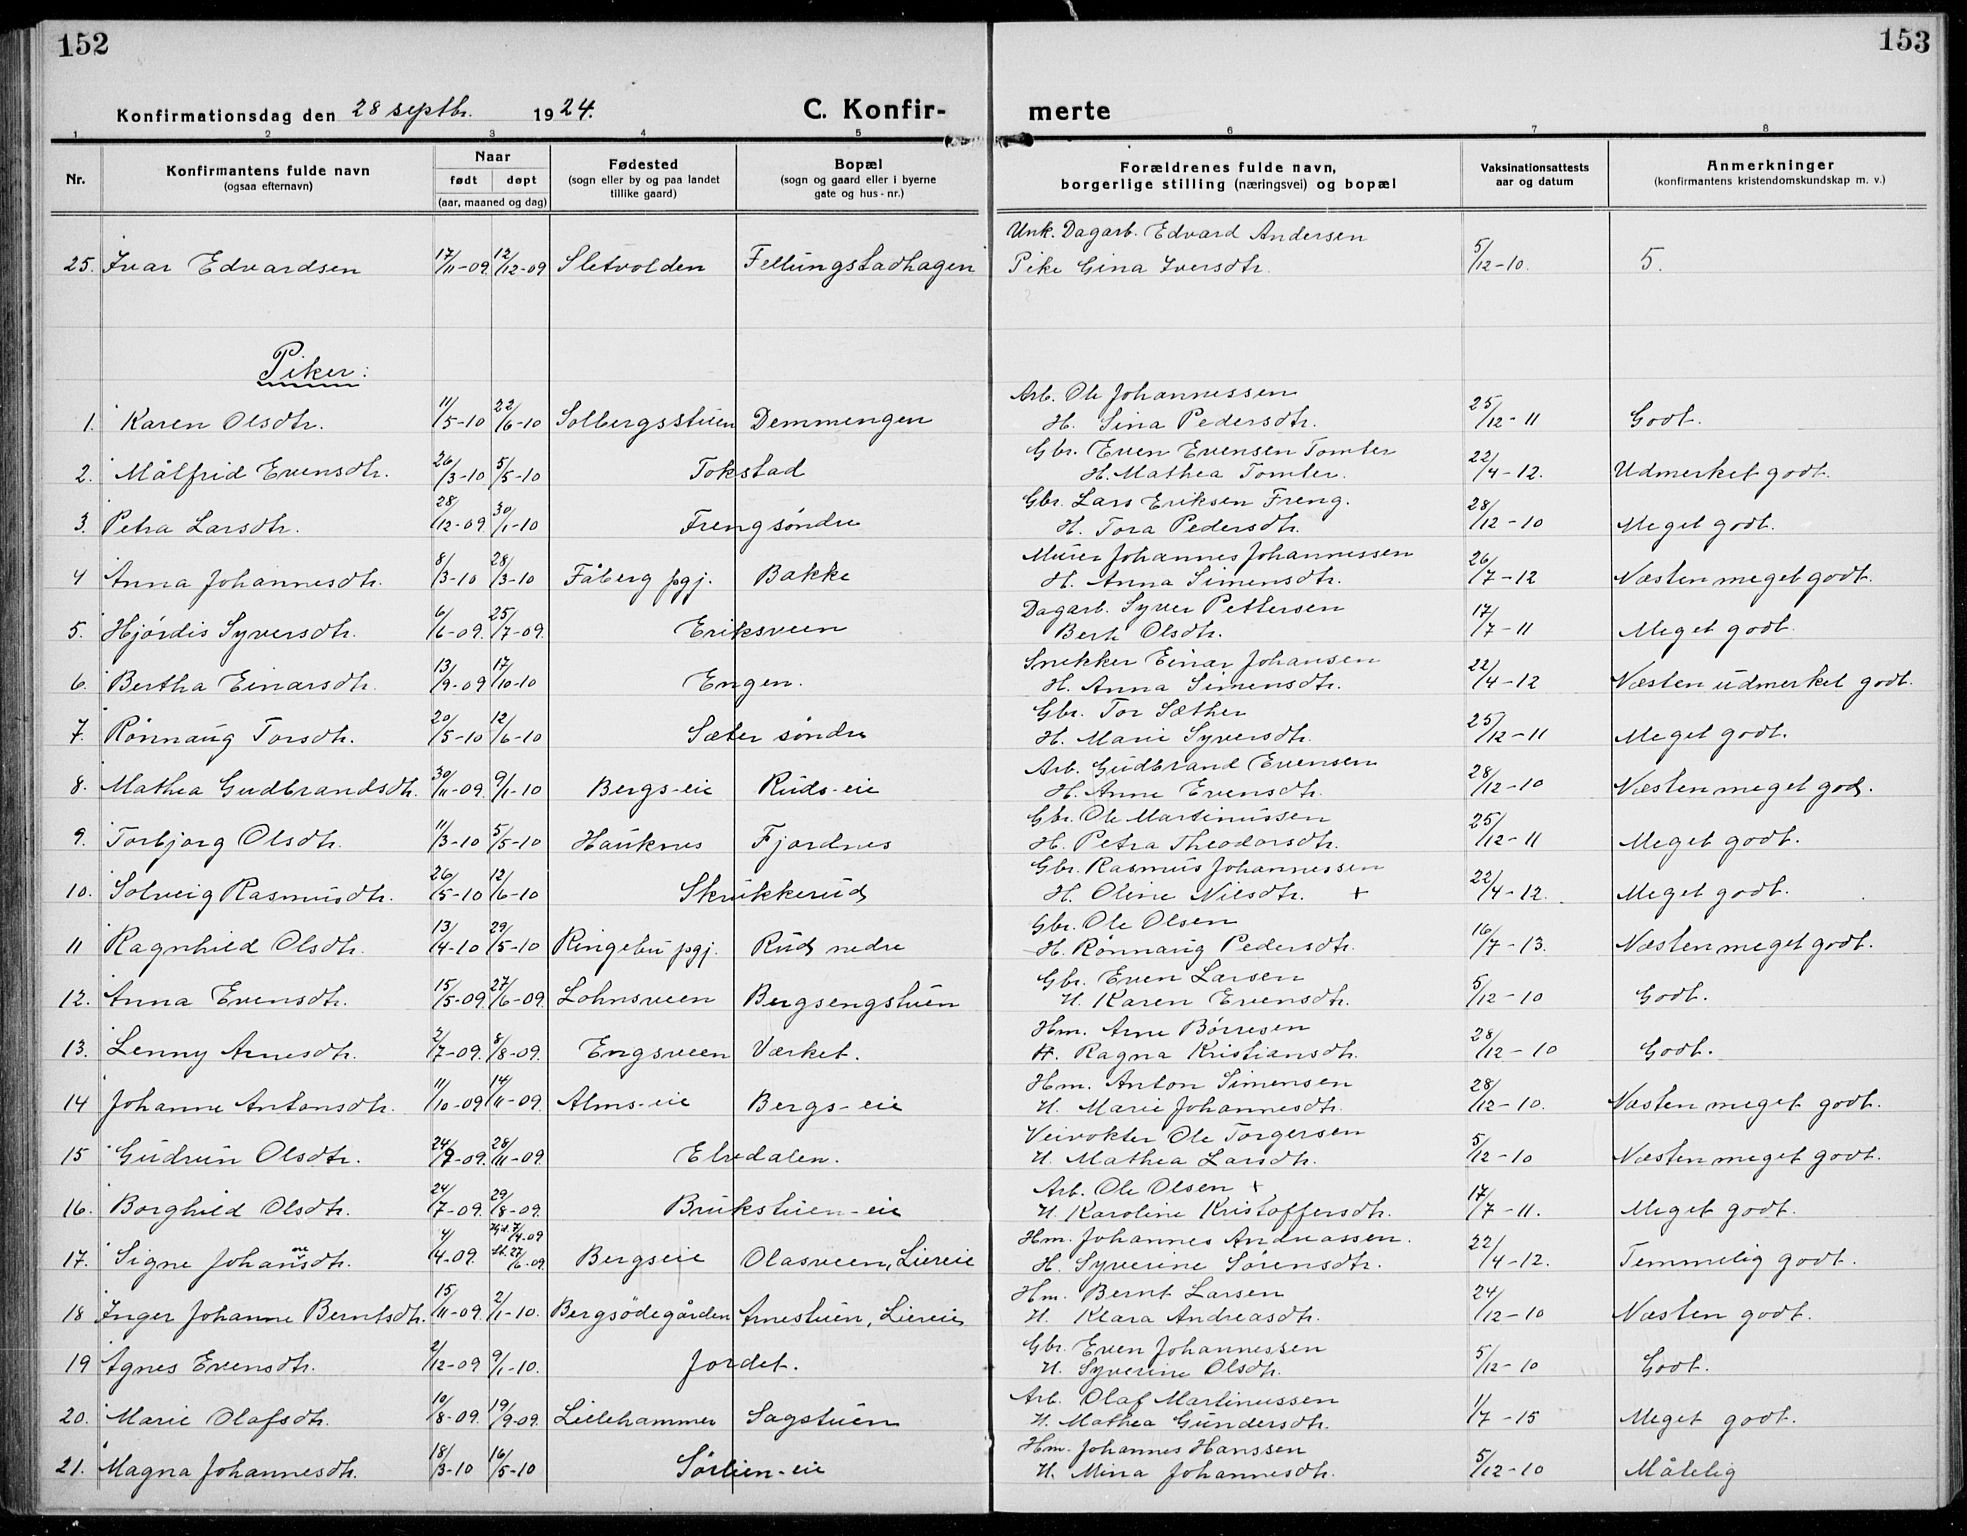 152
153
Konfirmationsdag den 28 septbr. 1924.
C. Konfir-
merte
1 2 3 4 5 6 7 8
Nr.
Konfirmantens fulde navn
(ogsaa efternavn)
Naar
født døpt
(aar, maaned og dag)
Fødested
(sogn eller by og paa landet
tillike gaard)
Bopæl
(sogn og gaard eller i byerne
gate og hus-nr.)
Forældrenes fulde navn,
borgerlige stilling (næringsvei) og bopæl
Vaksinationsattests
aar og datum
Anmerkninger
(konfirmantens kristendomskundskap m. v.)
Unk. Dagarb. Edvard Andersen
25. Ivar Edvardsen 17/11-09. 12/12-09 Sletvolden Fellungstadhagen Pike Gina Iversdtr. 5/12-10. 5.
Piker:
Arb. Ole Johannessen
1. Karen Olsdtr. 11/5-10 22/6-10 Solbergsstuen Demmengen H. Sina Pedersdtr. 25/12-11 Godt.
Gbr. Even Evensen Tomter
2. Målfrid Evensdtr. 26/3-10 5/5-10 Tokstad H. Mathea Tomter. 22/4-12. Udmerket godt.
Gbr. Lars Eriksen Freng.
3. Petra Larsdtr. 28/12-09 30/1-10 Freng søndre H. Tora Pedersdtr. 28/12-10 Meget godt.
Murer Johannes Johannessen
4 Anna Johannesdtr. 8/3-10 28/3-10 Fåberg pgj. Bakke H. Anna Simensdtr. 26/7-12 Næsten meget godt.
Dagarb. Syver Pettersen
5. Hjørdis Syversdtr. 6/6-09. 25/7-09. Eriksveen Berte Olsdtr. 17/7-11 Meget godt.
Snekker Einar Johansen
6. Bertha Einarsdtr. 13/9-09 17/10-10 Engen. H. Anna Simensdtr. 22/4-12 Næsten udmerket godt.
Gbr. Tor Sæther
7. Rønnaug Torsdtr. 20/5-10 12/6-10 Sæter søndre H. Marie Syversdtr. 25/12-11 Meget godt.
Arb. Gudbrand Evensen
8. Mathea Gudbrandsdtr. 30/11-09. 9/1-10 Bergs-eie Ruds-eie H. Anne Evensdtr. 28/12-10 Næsten meget god.
Gbr. Ole Martinussen
9. Torbjorg Olsdtr. 11/3-10 5/5-10 Hauknes Fjordnes H. Petra Theodorsdtr. 25/12-11 Meget godt.
Gbr. Rasmus Johannessen
10. Solveig Rasmusdtr. 26/5-10 12/6-10 Skrukkerud H. Oline Nilsdtr. + 22/4-12. Meget godt.
Gbr. Ole Olsen
11 Ragnhild Olsdtr. 13/4-10 29/5-10 Ringebu pgj. Rud nedre H. Rønnaug Pedersdtr. 16/7-13. Næsten meget godt.
Gbr. Even Larsen
12. Anna Evensdtr. 15/5-09. 27/6-09. Lohnsveen Bergsengstuen H. Karen Evensdtr. 5/12-10 Godt.
Hm. Arne Børresen
13. Lenny Arnesdtr. 2/7-09. 8/8-09. Engsveen Værket. H. Ragna Kristiansdtr. 28/12-10 Godt.
Hm. Anton Simensen
14 Johanne Antonsdtr. 11/10-09 14/11-09. Alms-eie Bergs-eie H. Marie Johannesdtr. 28/12-10. Næsten meget godt.
Veivokter Ole Torgersen
15 Gudrun Olsdtr. 24/9-09. 28/11-09. Elvedalen. H. Mathea Larsdtr. 5/12-10 Næsten meget godt.
Arb. Ole Olsen +
16. Borghild Olsdtr. 24/7-09. 29/8-09. Brukstuen-eie H. Karoline Kristoffersdtr. 17/7-11. Meget godt.
Hm. Johannes Andreassen.
17. Signe Johannesdtr. 4/4-09. Hjd. 7/4-09 St. 27/6-09. Bergseie Olasveen, Liereie H. Syverine Sørensdtr. 22/4-12. Temmelig godt.
Hm. Bernt Larsen
18 Inger Johanne Berntsdtr. 15/11-09. 2/1-10. Bergsødegården Arnestuen, Liereie H. Klara Andreasdtr. 24/12-10 Næsten godt.
Gbr. Even Johannessen
19 Agnes Evensdtr. 2/12-09 9/1-10. Jordet. H. Syverine Olsdtr. 5/12-10 Godt.
Arb. Olaf Martinussen
20. Marie Olafsdtr. 10/8-09. 19/9-09. Lillehammer Sagstuen H. Mathea Gundersdtr. 1/7-15 Meget godt.
Hm. Johannes Hanssen
21. Magna Johannesdtr. 18/3-10 16/5-10 Sørlien-eie H. Mina Johannesdtr. 5/12-10 Målelig